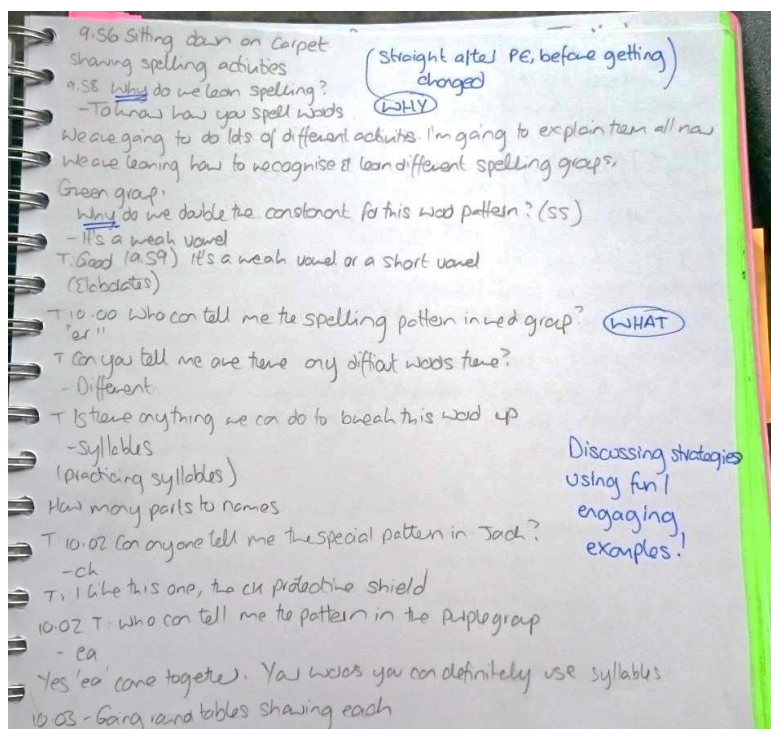 9.56 Sitting down on carpet
sharing spelling activities
(Straight after PE, before getting
changed)
9.58 Why do we learn spelling?
WHY
- To know how you spell words
We are going to do lots of different activites. I'm going to explain them all now
We are learning how to recognise & learn different spelling groups.
Green group.
Why do we double the consonant for this word pattern? (ss)
- It's a weak vowel
T. Good (9.59) It's a weak vowel or a short vowel
(Elaborates)
T 10.00 Who can tell me the spelling pattern in red group?
WHAT
"er"
T Can you tell me are there any difficult words there?
- Different
T Is there anything we can do to break this word up
- Syllables
(practicing syllables)
How many parts to names
Discussing strategies
using fun /
engaging
examples!
T. 10.02 Can anyone tell me the special pattern in Jack?
- ck
T. I like this one, the ck protective shield
10.02 T. Who can tell me the pattern in the purple group
- ea
Yes 'ea' come together. Your words you can definitely use syllables
10.03 - Going round tables showing each